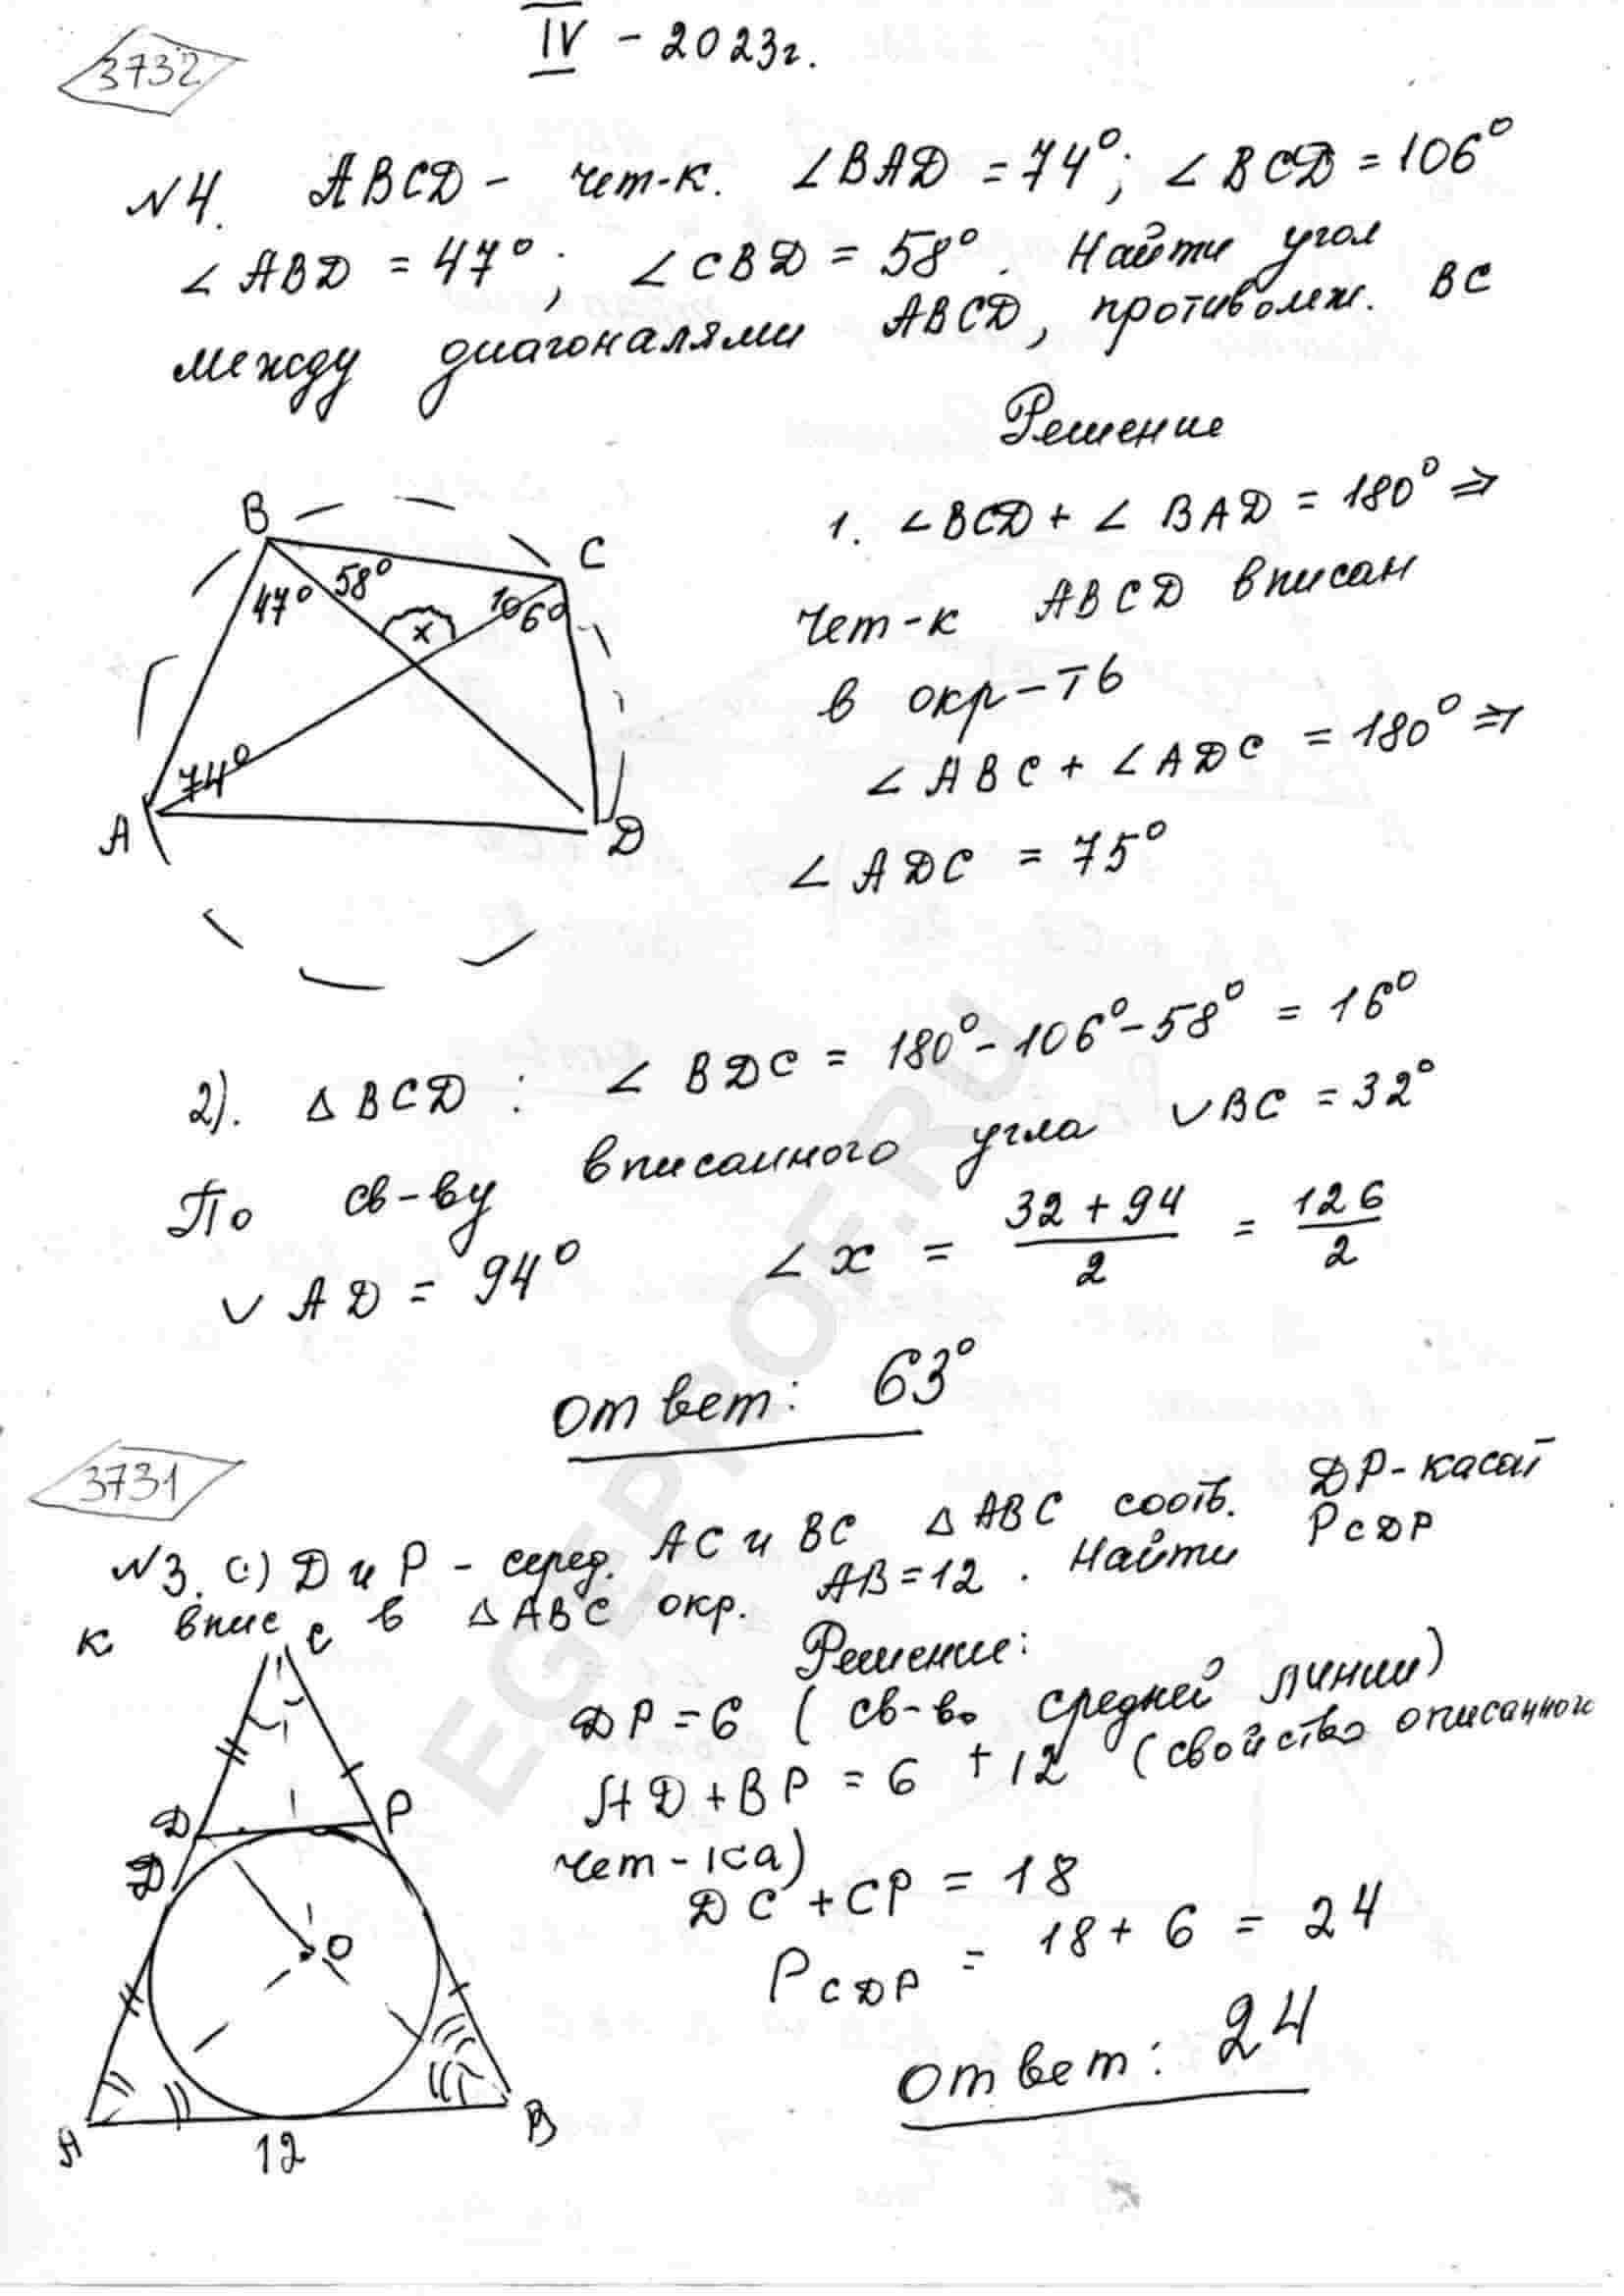 3732
IV - 2023г.
№4. ABCD - чет-к. ∠BAD = 74°; ∠BCD = 106°
∠ABD = 47°; ∠CBD = 58°. Найти угол
между диагоналями ABCD, противолеж. BC
Решение
B
C
47°
58°
x
106°
74°
A
D
1. ∠BCD + ∠BAD = 180° ⇒
Чет-к ABCD вписан
в окр-ть
∠ABC + ∠ADC = 180° ⇒
∠ADC = 75°
2). △BCD: ∠BDC = 180° - 106° - 58° = 16°
По св-ву вписанного угла ◡BC = 32°
◡AD = 94° ∠x = (32 + 94)/2 = 126/2
Ответ: 63°
3731
№3. D и P - серед. AC и BC △ABC соотв. DP - касат
к впис в △ABC окр. AB = 12. Найти P CDP
Решение:
C
D
P
D
O
A
12
B
DP = 6 (св-во средней линии)
AD + BP = 6 + 12 (свойство описанного
чет-ка)
DC + CP = 18
P CDP = 18 + 6 = 24
Ответ: 24
EGEPROF.RU